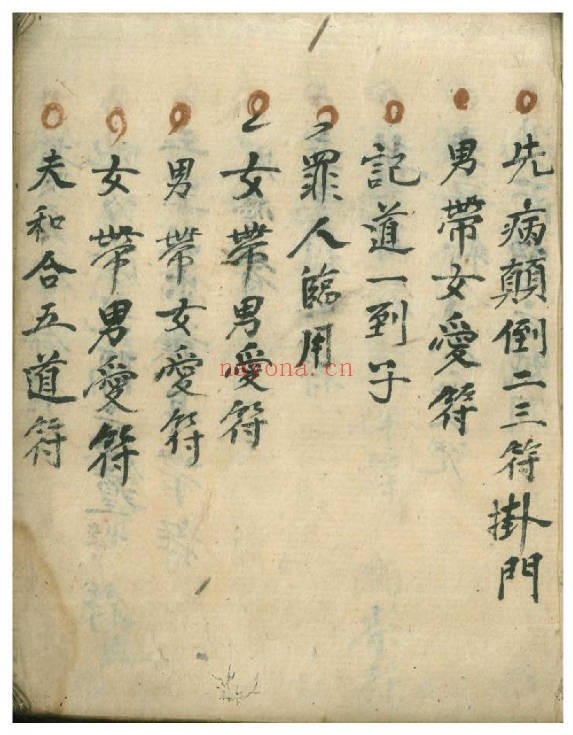 先病顛倒二三符掛門
男帶女愛符
記道一到子
罪人臨用
女帶男愛符
男帶女愛符
女帶男愛符
夫和合五道符
nayona.cn